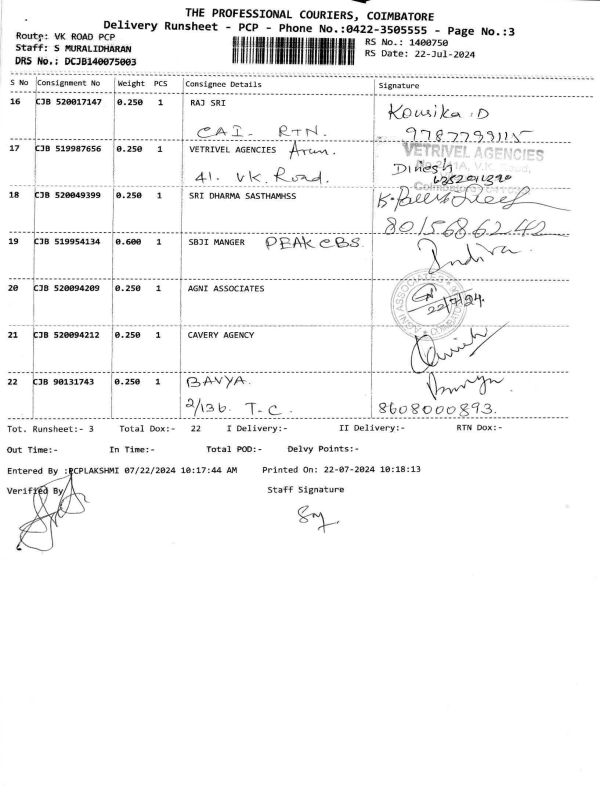 THE PROFESSIONAL COURIERS, COIMBATORE
Delivery Runsheet - PCP - Phone No.:0422-3505555 - Page No.:3
Route: VK ROAD PCP
RS No.: 1400750
Staff: S MURALIDHARAN
RS Date: 22-Jul-2024
DRS No.: DCJB140075003
S No Consignment No Weight PCS Consignee Details Signature
16 CJB 520017147 0.250 1 RAJ SRI Kousika.D
CAI. RTN. 9787799115
17 CJB 519987656 0.250 1 VETRIVEL AGENCIES Arun. VETRIVEL AGENCIES
41. V.K. Road. Dinesh
18 CJB 520049399 0.250 1 SRI DHARMA SASTHAMHSS
8015686242
19 CJB 519954134 0.600 1 SBJI MANGER PEAK CBS Indira
20 CJB 520094209 0.250 1 AGNI ASSOCIATES AGNI ASSOCIATES
22/7/24.
21 CJB 520094212 0.250 1 CAVERY AGENCY
22 CJB 90131743 0.250 1 BAVYA.
2/136. T-C. 8608000893.
Tot. Runsheet:- 3 Total Dox:- 22 I Delivery:- II Delivery:- RTN Dox:-
Out Time:- In Time:- Total POD:- Delvy Points:-
Entered By :PCPLAKSHMI 07/22/2024 10:17:44 AM Printed On: 22-07-2024 10:18:13
Verified By Staff Signature